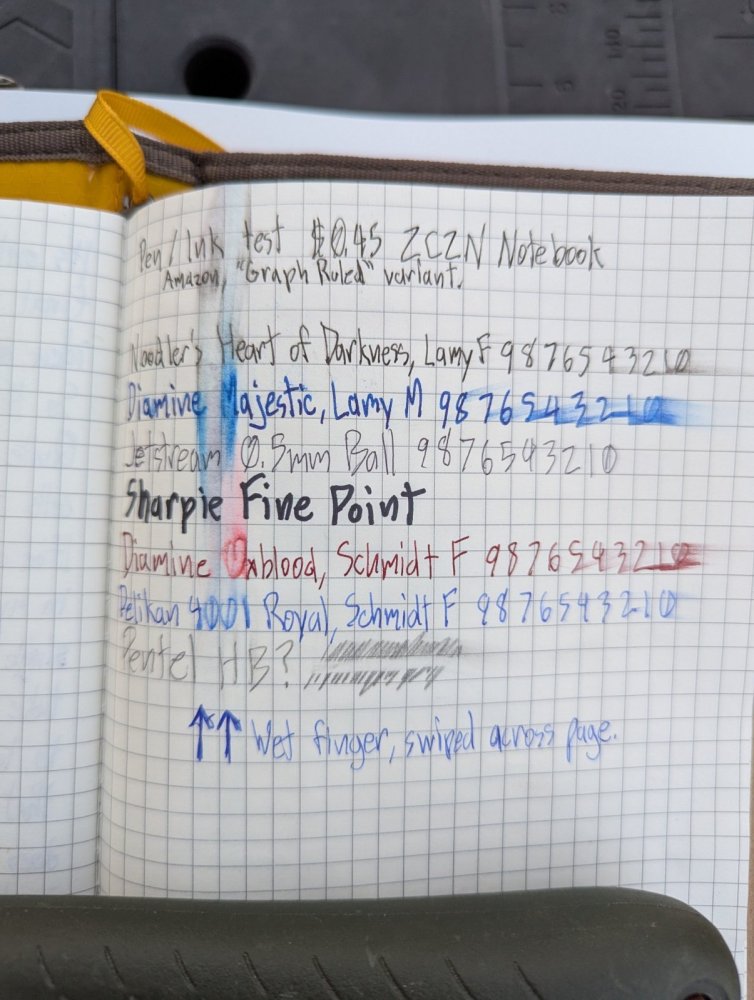 Pen / Ink test $0.45 ZCZN Notebook
Amazon, "Graph Ruled" variant.
Noodler's Heart of Darkness, Lamy F 9876543210
Diamine Majestic, Lamy M 9876543210
Jetstream 0.5mm Ball 9876543210
Sharpie Fine Point
Diamine Oxblood, Schmidt F 9876543210
Pelikan 4001 Royal, Schmidt F 9876543210
Pentel HB?
↑↑ Wet finger, swiped across page.